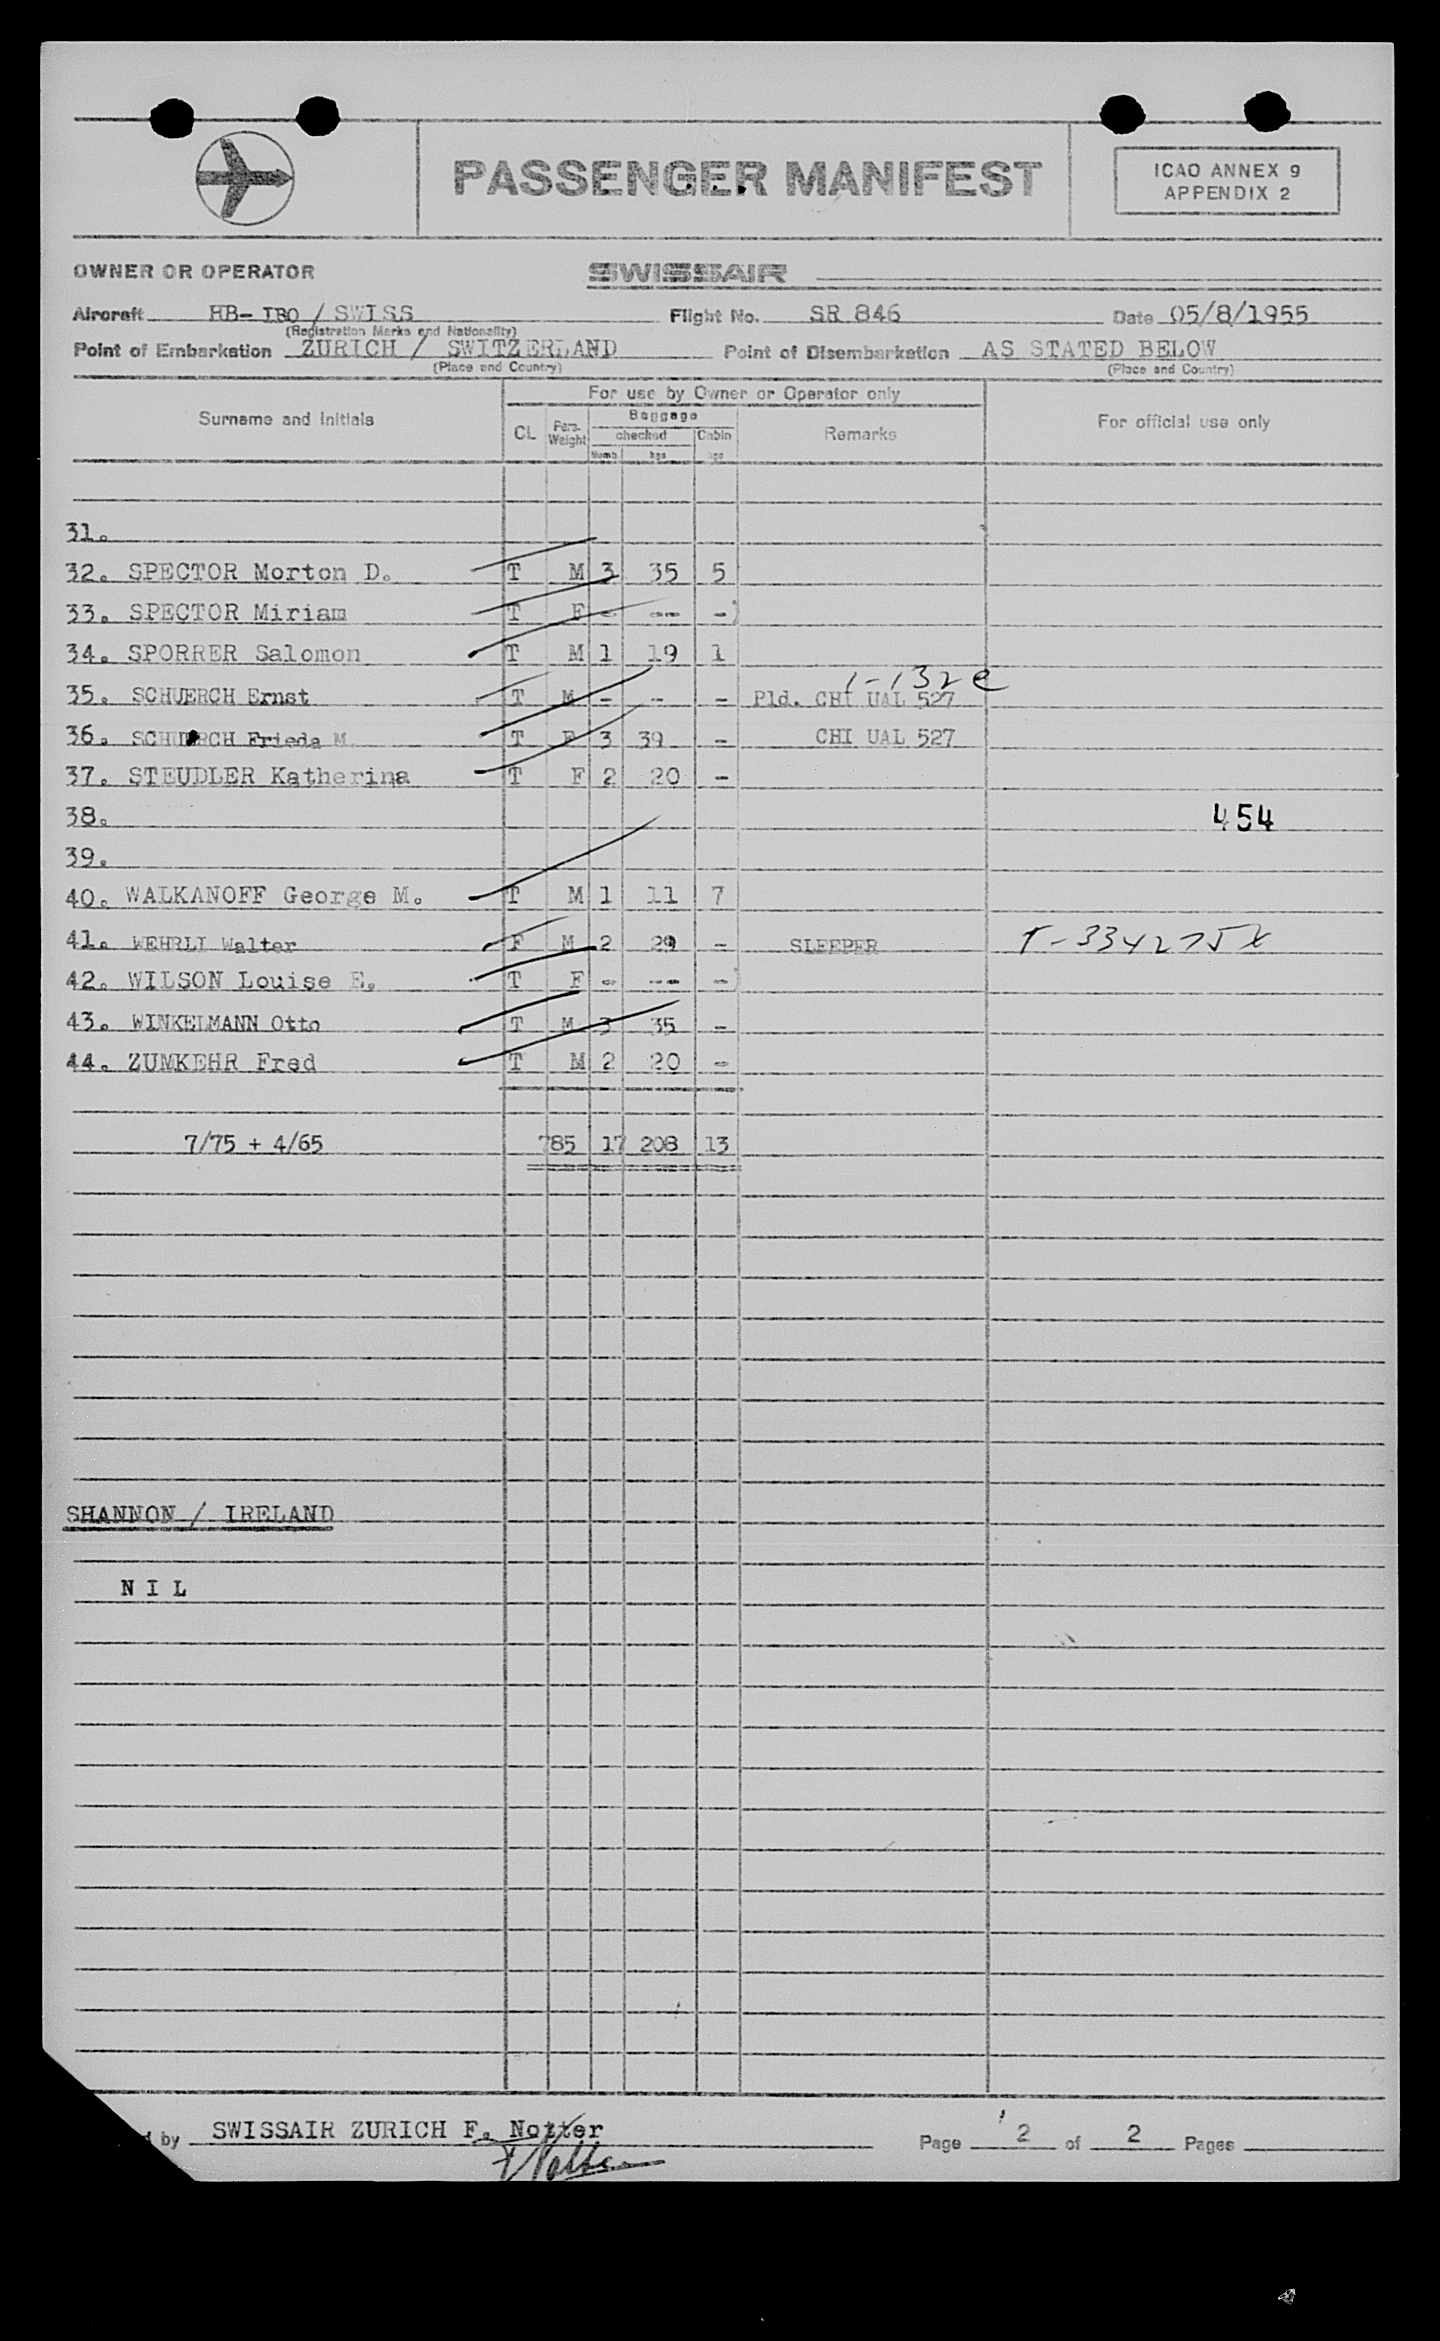 PASSENGER MANIFEST
ICAO ANNEX 9
APPENDIX 2
OWNER OR OPERATOR SWISSAIR
Aircraft HB-IBO / SWISS Flight No. SR 846 Date 05/8/1955
(Registration Marks and Nationality)
Point of Embarkation ZURICH / SWITZERLAND Point of Disembarkation AS STATED BELOW
(Place and Country) (Place and Country)
For use by Owner or Operator only
Surname and Initials CL Pers. Weight Baggage checked Numb. kgs Cabin kgs Remarks For official use only
31.
32. SPECTOR Morton D. T M 3 35 5
33. SPECTOR Miriam T F - --- -
34. SPORRER Salomon T M 1 19 1
1-132e
35. SCHUERCH Ernst T M - - - Pld. CHI UAL 527
36. SCHUERCH Frieda M. T F 3 39 - CHI UAL 527
37. STEUDLER Katherina T F 2 20 -
38. 454
39.
40. WALKANOFF George M. T M 1 11 7
41. WEHRLI Walter F M 2 29 - SLEEPER T-334275X
42. WILSON Louise E. T F - --- -
43. WINKELMANN Otto T M 3 35 -
44. ZUMKEHR Fred T M 2 20 -
7/75 + 4/65 785 17 208 13
SHANNON / IRELAND
N I L
d by SWISSAIR ZURICH F. Notter
F Notter
Page 2 of 2 Pages